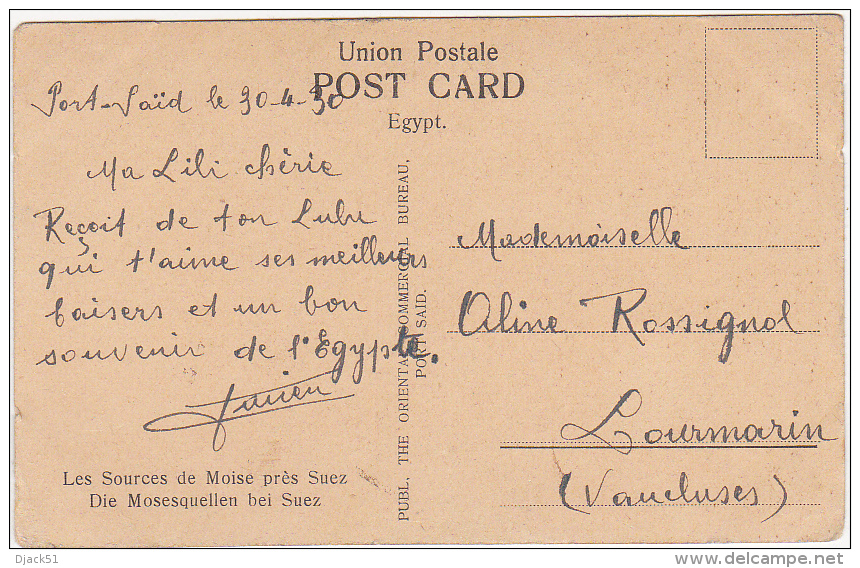 Union Postale
POST CARD
Egypt.
Port-Saïd le 30-4-30
Ma Lili chérie
Reçoit de ton Lulu
qui t'aime ses meilleurs
baisers et un bon
souvenir de l'Egypte.
Lucien
Les Sources de Moise près Suez
Die Mosesquellen bei Suez
PUBL. THE ORIENTAL COMMERCIAL BUREAU,
PORT SAID.
Mademoiselle
Aline Rossignol
Lourmarin
(Vaucluses)
Djack51
delcampe.net